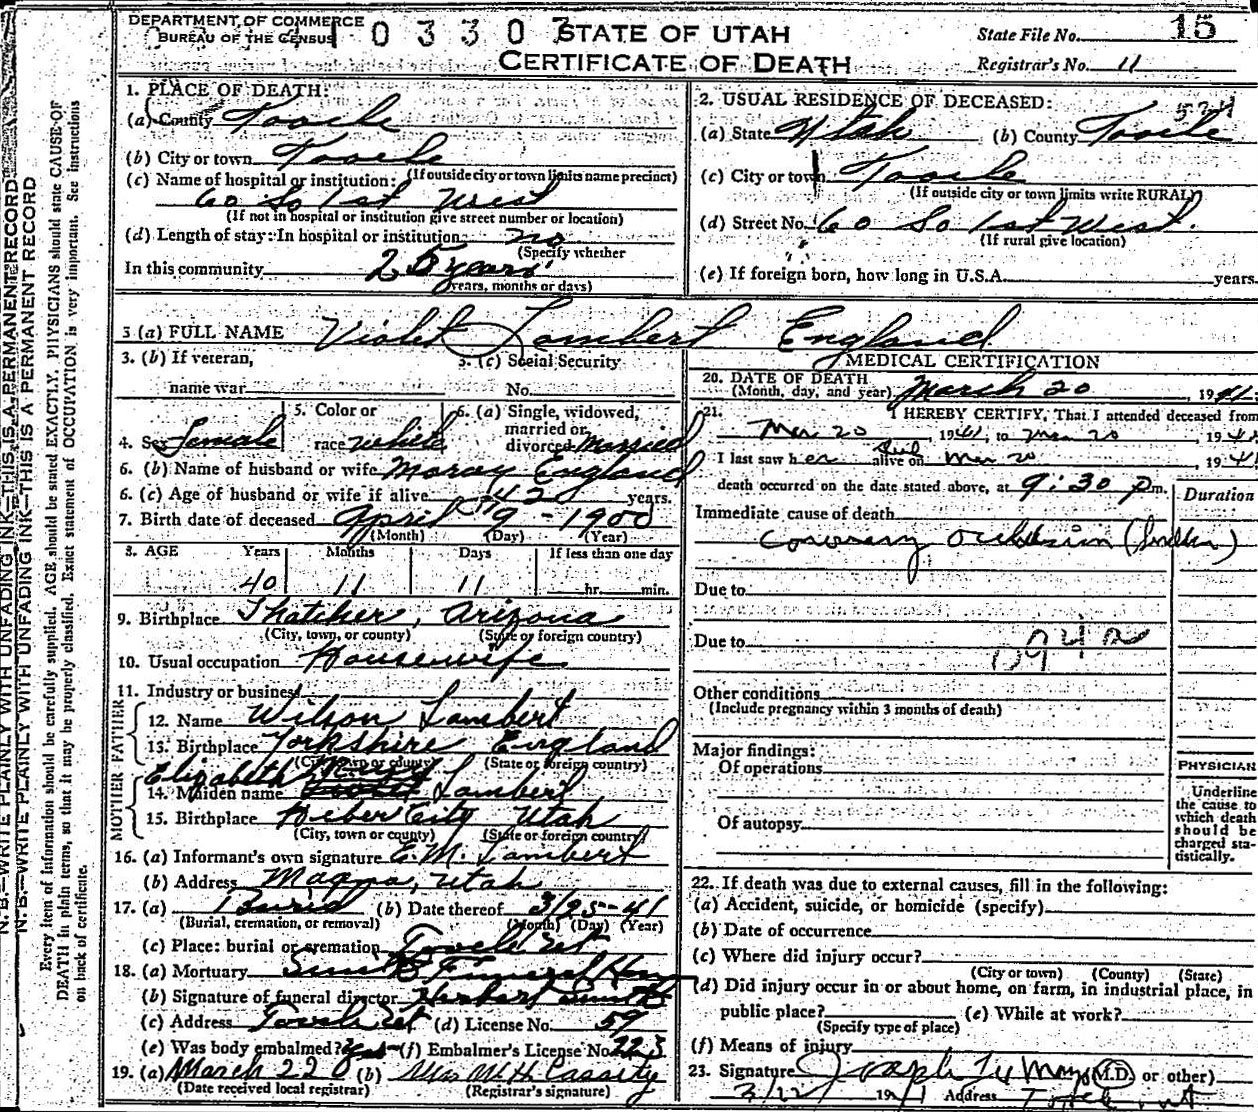 DEPARTMENT OF COMMERCE
BUREAU OF THE CENSUS
0 3 3 0 3
STATE OF UTAH
CERTIFICATE OF DEATH
State File No. 15
Registrar's No. 11
N. B.—WRITE PLAINLY WITH UNFADING INK—THIS IS A PERMANENT RECORD
N. B.—WRITE PLAINLY WITH UNFADING INK—THIS IS A PERMANENT RECORD
Every item of information should be carefully supplied. AGE should be stated EXACTLY. PHYSICIANS should state CAUSE OF
DEATH in plain terms, so that it may be properly classified. Exact statement of OCCUPATION is very important. See instructions
on back of certificate.
1. PLACE OF DEATH:
(a) County Tooele
(b) City or town Tooele
(If outside city or town limits name precinct)
(c) Name of hospital or institution:
60 So 1st West
(If not in hospital or institution give street number or location)
(d) Length of stay: In hospital or institution no
(Specify whether
In this community 25 years
years, months or days)
2. USUAL RESIDENCE OF DECEASED:
(a) State Utah (b) County Tooele
(c) City or town Tooele
(If outside city or town limits write RURAL)
(d) Street No. 60 So 1st West.
(If rural give location)
(e) If foreign born, how long in U.S.A. years.
3 (a) FULL NAME Violet Lambert England
3. (b) If veteran,
name war
3. (c) Social Security
No.
4. Sex Female
5. Color or
race white
6. (a) Single, widowed,
married or
divorced married
6. (b) Name of husband or wife England
6. (c) Age of husband or wife if alive 42 years.
7. Birth date of deceased April 9 - 1900
(Month) (Day) (Year)
8. AGE Years Months Days If less than one day
40 11 11 hr. min.
9. Birthplace Thatcher, Arizona
(City, town, or county) (State or foreign country)
10. Usual occupation Housewife
11. Industry or business
FATHER
12. Name Wilson Lambert
13. Birthplace Yorkshire England
(City, town or county) (State or foreign country)
MOTHER
Elizabeth
14. Maiden name Lambert
15. Birthplace Heber City Utah
(City, town or county) (State or foreign country)
16. (a) Informant's own signature E. M. Lambert
(b) Address Magna, Utah
17. (a) Burial (b) Date thereof 3/25-41
(Burial, cremation, or removal) (Month) (Day) (Year)
(c) Place: burial or cremation Tooele Ut
18. (a) Mortuary Smith Funeral Home
(b) Signature of funeral director Herbert Smith
(c) Address Tooele Ut (d) License No. 59
(e) Was body embalmed? Yes (f) Embalmer's License No. 223
19. (a) March 22 (b) Mrs M H Cassity
(Date received local registrar) (Registrar's signature)
MEDICAL CERTIFICATION
20. DATE OF DEATH
(Month, day, and year) March 20, 1941
21. I HEREBY CERTIFY, That I attended deceased from
Mar 20 1941, to Mar 20, 1941
I last saw h er alive on Mar 20, 1941
death occurred on the date stated above, at 9:30 P m.
Duration
Immediate cause of death
coronary occlusion
Due to
Due to
094a
Other conditions
(Include pregnancy within 3 months of death)
Major findings:
Of operations
Of autopsy
PHYSICIAN
Underline
the cause to
which death
should be
charged sta-
tistically.
22. If death was due to external causes, fill in the following:
(a) Accident, suicide, or homicide (specify)
(b) Date of occurrence
(c) Where did injury occur?
(City or town) (County) (State)
(d) Did injury occur in or about home, on farm, in industrial place, in
public place? (e) While at work?
(Specify type of place)
(f) Means of injury
23. Signature Joseph (M.D. or other)
3/22 1941 Address